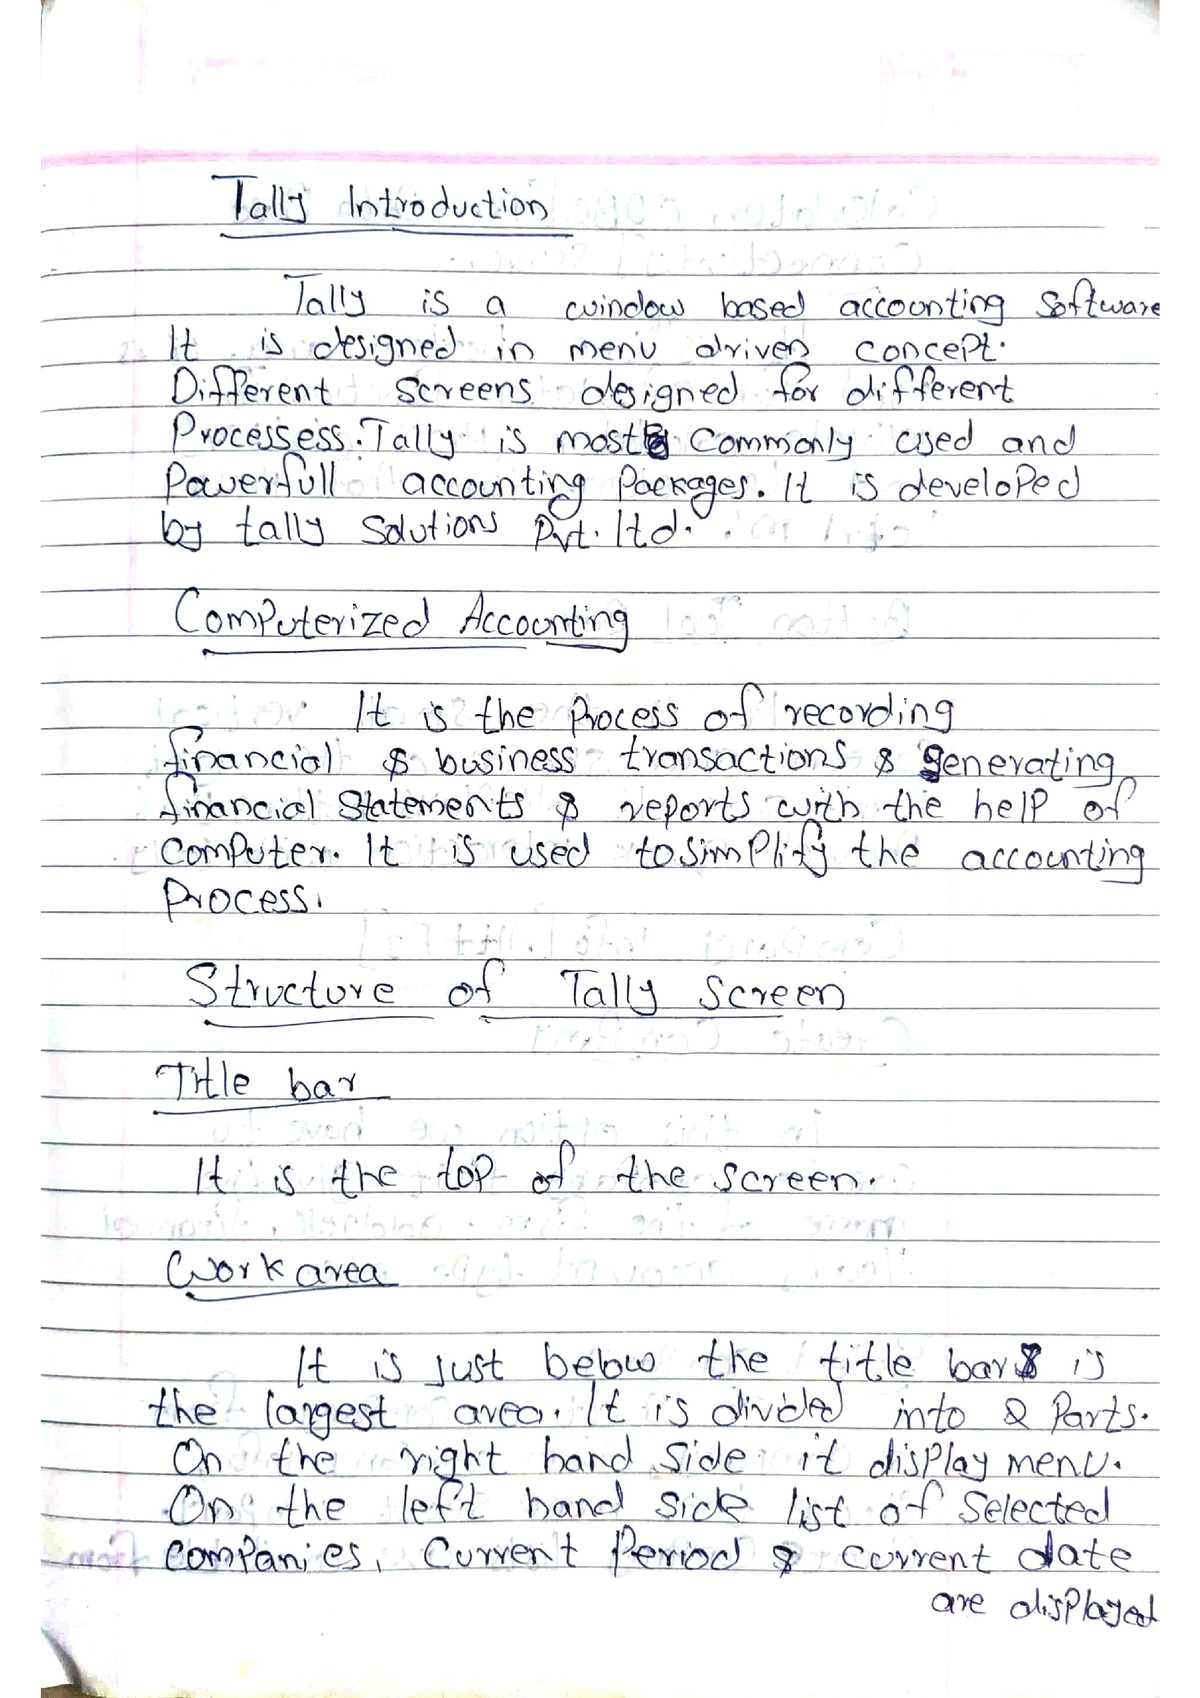 Tally Introduction
Tally is a window based accounting Software
It is designed in menu driven concept.
Different screens designed for different
Processess. Tally is most commonly used and
Powerfull accounting Packages. It is developed
by tally Solutions Pvt. ltd.
Computerized Accounting
It is the Process of recording
financial & business transactions & generating
financial Statements & reports with the help of
Computer. It is used to simplify the accounting
Process.
Structure of Tally Screen
Title bar
It is the top of the screen.
Work area
It is just below the title bar & is
the largest area. It is divided into 2 Parts.
On the right hand side it display menu.
On the left hand side list of Selected
Companies, Current Period & current date
are displayed